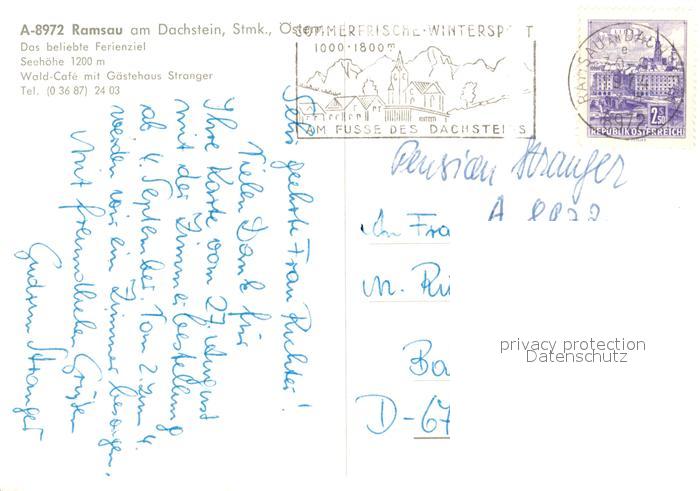 A-8972 Ramsau am Dachstein, Stmk., Österr.
Das beliebte Ferienziel
Seehöhe 1200 m
Wald-Café mit Gästehaus Stranger
Tel. (0 36 87) 24 03
SOMMERFRISCHE·WINTERSPORT
1000-1800m
AM FUSSE DES DACHSTEINS
RAMSAU
8972
2.50
REPUBLIK ÖSTERREICH
Pension Stranger
A 8972
Sehr geehrte Frau Richter!
Vielen Dank für
Ihre Karte vom 27. August
mit der Zimmerbestellung
ab 4. September. Vom 2. zum 4.
werden wir ein Zimmer besorgen.
Mit freundlichen Grüßen
Gudrun Stranger
An Fra
M. Ri
Ba
D-67
privacy protection
Datenschutz